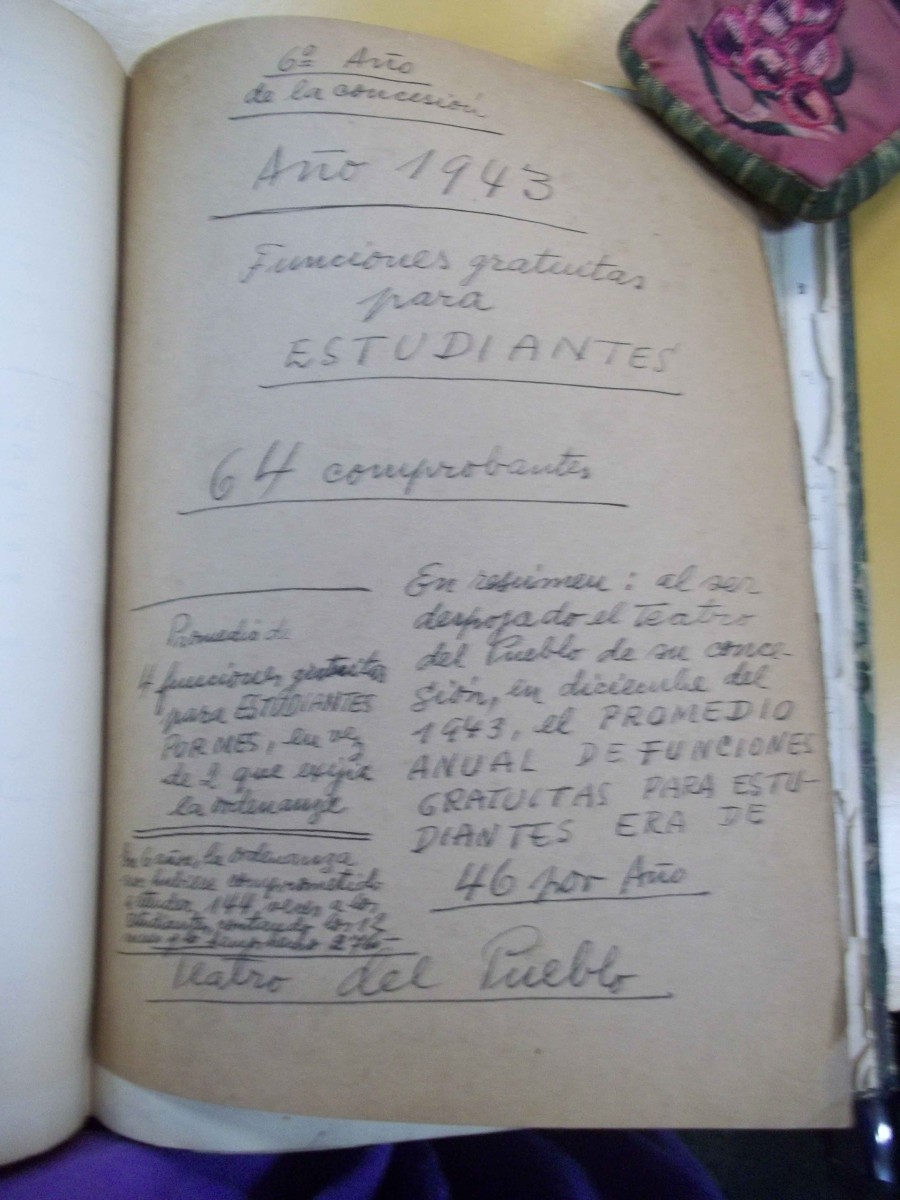 6º Año
de la concesión
Año 1943
Funciones gratuitas
para
ESTUDIANTES
64 comprobantes
Promedio de
4 funciones gratuitas
para ESTUDIANTES
POR MES, en vez
de 2 que exijía
la ordenanza
En 6 años, la ordenanza
nos hubiese comprometido
a atender, 144 veces a los
estudiantes, contando los 12
meses y lo hemos hecho 276.-
En resúmen: al ser
despojado el Teatro
del Pueblo de su conce-
sión, en diciembre del
1943, el PROMEDIO
ANUAL DE FUNCIONES
GRATUITAS PARA ESTU-
DIANTES ERA DE
46 por Año
Teatro del Pueblo